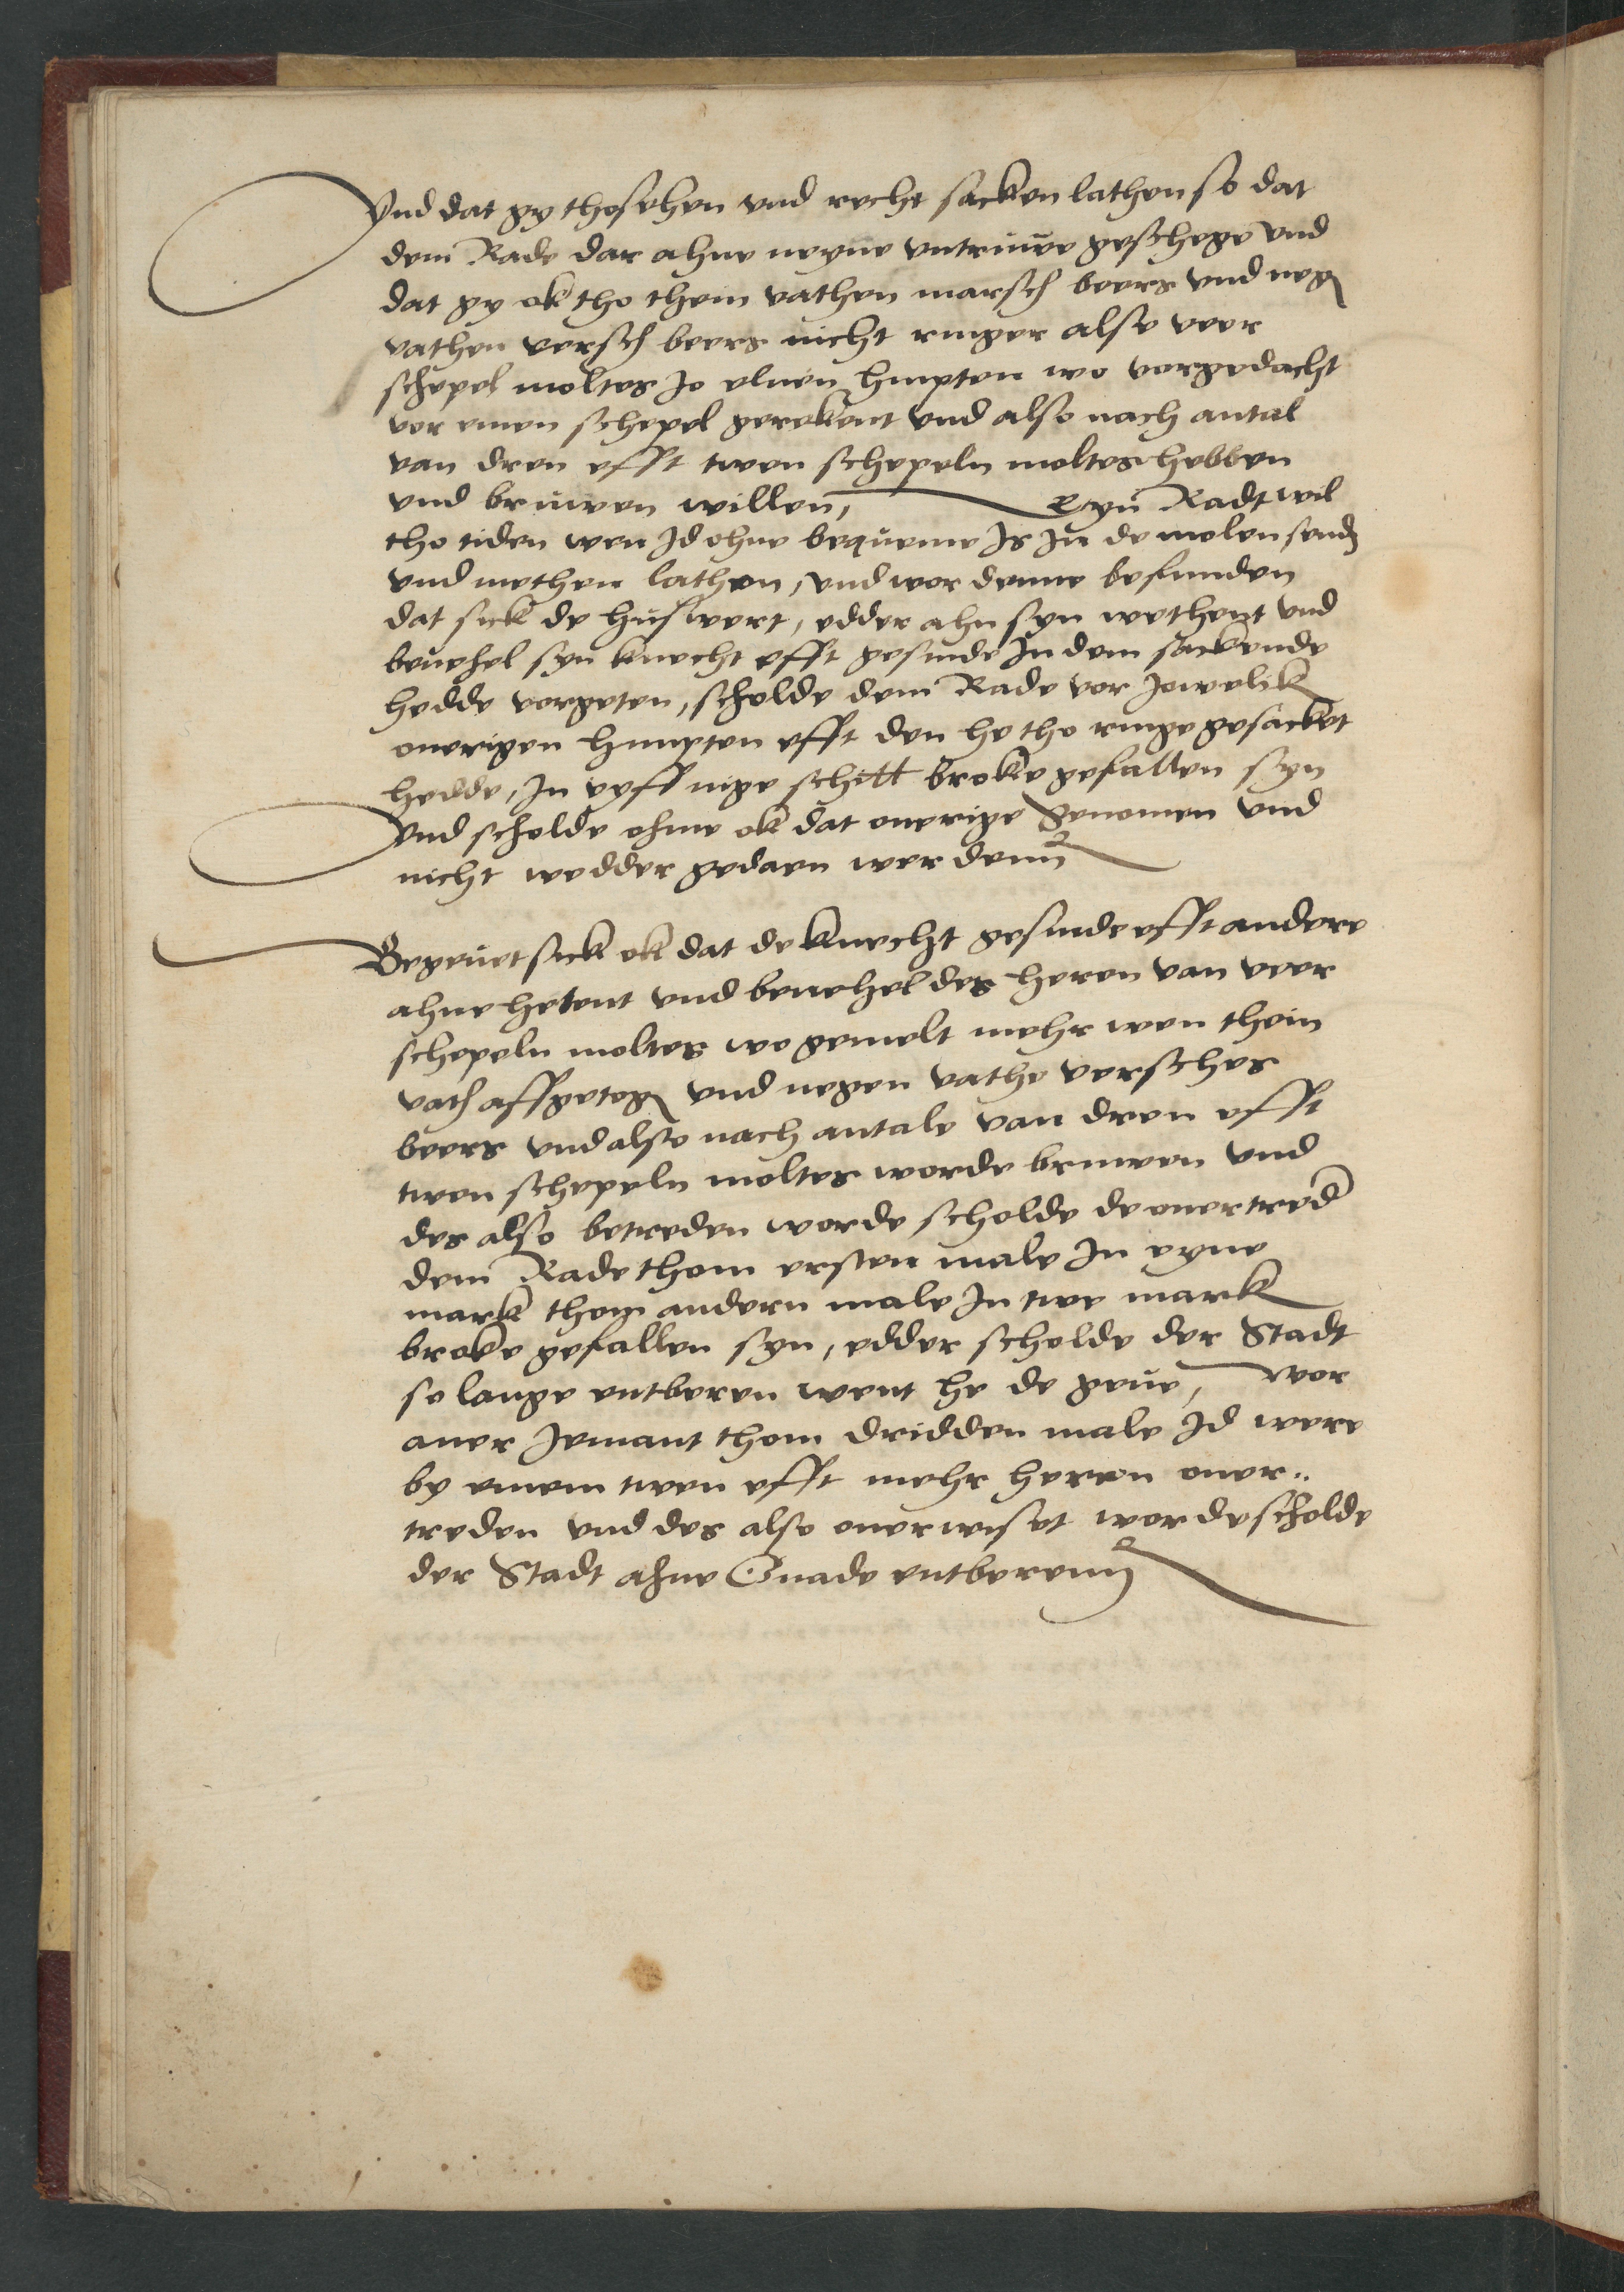 Vnd dat gy thosehen vnd recht sacken lathen so dat
dem Rade dar ahne neyne vntruwe geschege vnd
dat gy ok tho thein vathen marsch beers vnd neg
vathen versch beers nicht ringer alse veer
schepel moltes Jo eluen himpten wo vorgedacht
vor einen schepel gerekent vnd also nach antal
van dren efft twen schepeln moltes hebben
vnd bruwen willen, Eyn Radt wil
tho tiden wen Jd ohne bequeme Is In de molen send
vnd methen lathen, vnd wor denne befunden
dat sick de huswert, edder ahn syn wethent vnd
beuehel syn knecht efft gesinde In dem sackende
hedde vorgeten, scholde dem Rade vor Jowelik
ouerigen himpten efft den he tho ringe gesacket
hedde, In vyff nige schill broke gefallen syn
Vnd scholde ohme ok dat ouerige genomen vnd
nicht wedder gedaen werdenn
Begeuet sick ok dat de knecht gesinde efft andere
ahne hetent vnd beuehel des heren van veer
schepeln moltes wo gemelt mehr wen thein
vath affgetog vnd negen vathe versches
beers vnd alse nach antale van dren efft
twen schepeln moltes worde bruwen vnd
des also betreden worde scholde de ouertred
dem Rade thom ersten male In eyne
mark thom andern male In twe mark
broke gefallen syn, edder scholde der Stadt
so lange entberen went he de geue, Wor
auer Jemant thom dridden male Jd were
by einem twen efft mehr herren ouer-
treden vnd des also ouerwiset worde scholde
der Stadt ahne Gnade entberenn